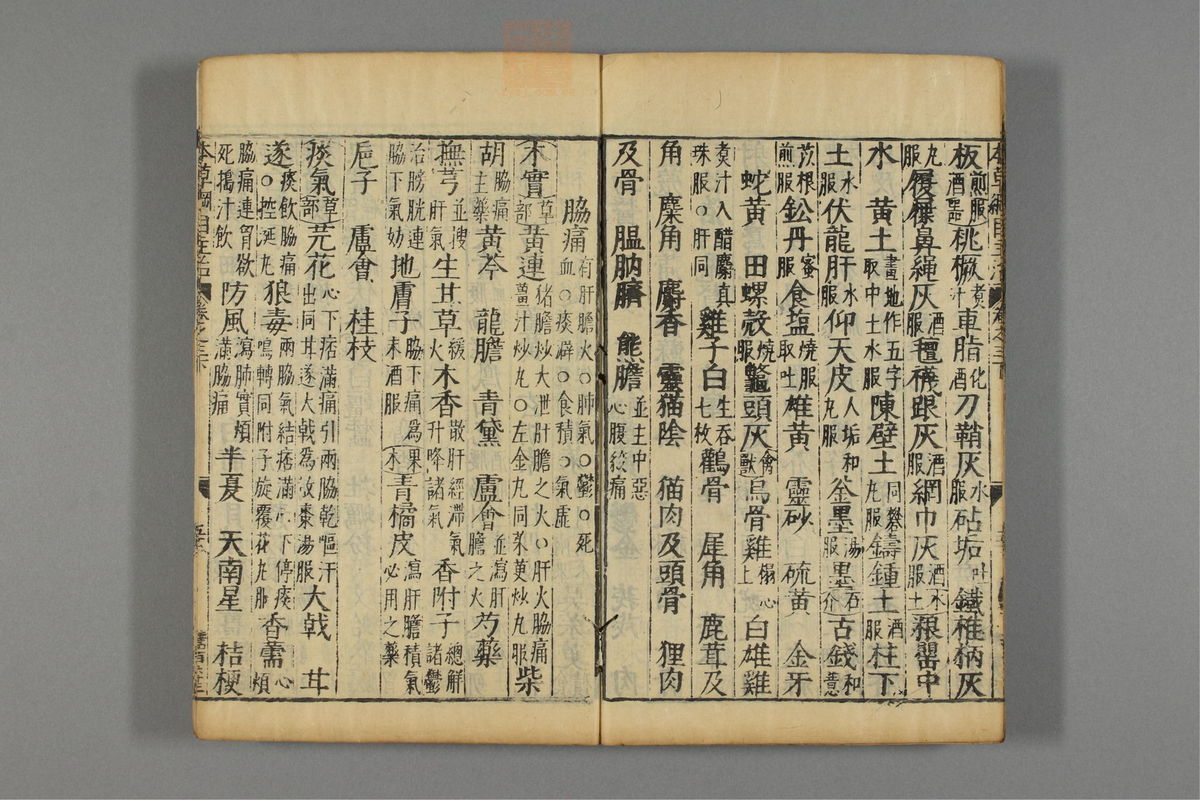 板煎服酒桃橛煮汁車脂化酒刀鞘灰水服砧垢鐵椎柄灰
丸服履屧鼻繩灰酒服氊襪跟灰酒服網巾灰酒服土狼罶中
水 黃土畫地作五字取中土水服陳壁土同礬丸服鑄鍾土酒服柱下
土水服伏龍肝水服仰天皮人垢和丸服釜墨湯服墨石介古錢和薏
苡根煎服鉛丹蜜服食塩燒服取吐雄黃 靈砂 硫黃 金牙
蛇黃 田螺殼燒服鼈頭灰禽獸烏骨雞搨心上白雄雞
煮汁入醋麝真珠服○肝同雞子白生吞七枚鸛骨 犀角 鹿茸及
角 麋角 麝香 靈猫陰 猫肉及頭骨 狸肉
及骨 膃肭臍 熊膽並主中惡心腹絞痛
脇痛有肝膽火○肺氣○鬱○死血○痰澼○食積○氣虛
木實草部黃連猪膽炒大泄肝膽之火○肝火脇痛薑汁炒丸○左金丸同茱萸炒丸服柴
胡脇痛主藥黃芩 龍膽 青黛 盧會並瀉肝膽之火芍藥
撫芎並搜肝氣生甘草緩火木香散肝經滯氣升降諸氣香附子總解諸鬱
治膀胱連脇下氣妨地膚子脇下痛為末酒服果木青橘皮瀉肝膽積氣必用之藥
巵子 盧會 桂枝
痰氣草部芫花心下痞滿痛引兩脇乾嘔汗出同甘遂大戟為散棗湯服大戟 甘
遂痰飲脇痛○控涎丸狼毒兩脇氣結痞滿心下停痰鳴轉同附子旋覆花丸服香薷心煩
脇痛連胷欲死擣汁飲防風瀉肺實煩滿脇痛半夏 天南星 桔梗